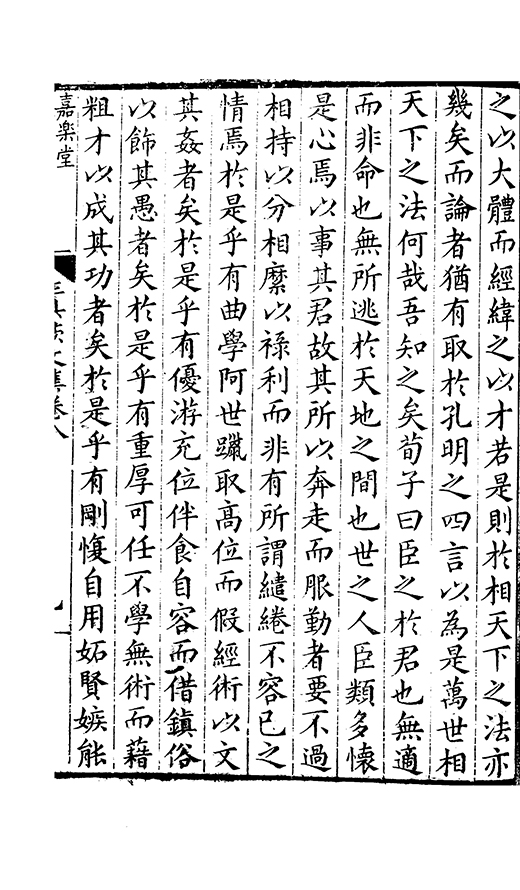 之以大體而經緯之以才若是則於相天下之法亦
幾矣而論者猶有取於孔明之四言以為是萬世相
天下之法何哉吾知之矣荀子曰臣之於君也無適
而非命也無所逃於天地之間也世之人臣類多懐
是心焉以事其君故其所以奔走而服勤者要不過
相持以分相縻以祿利而非有所謂繾綣不容已之
情焉於是乎有曲學阿世躐取高位而假經術以文
其姦者矣於是乎有優游充位伴食自容而借鎮俗
以飾其愚者矣於是乎有重厚可任不學無術而藉
粗才以成其功者矣於是乎有剛愎自用妬賢嫉能
嘉樂堂
文集卷八
九